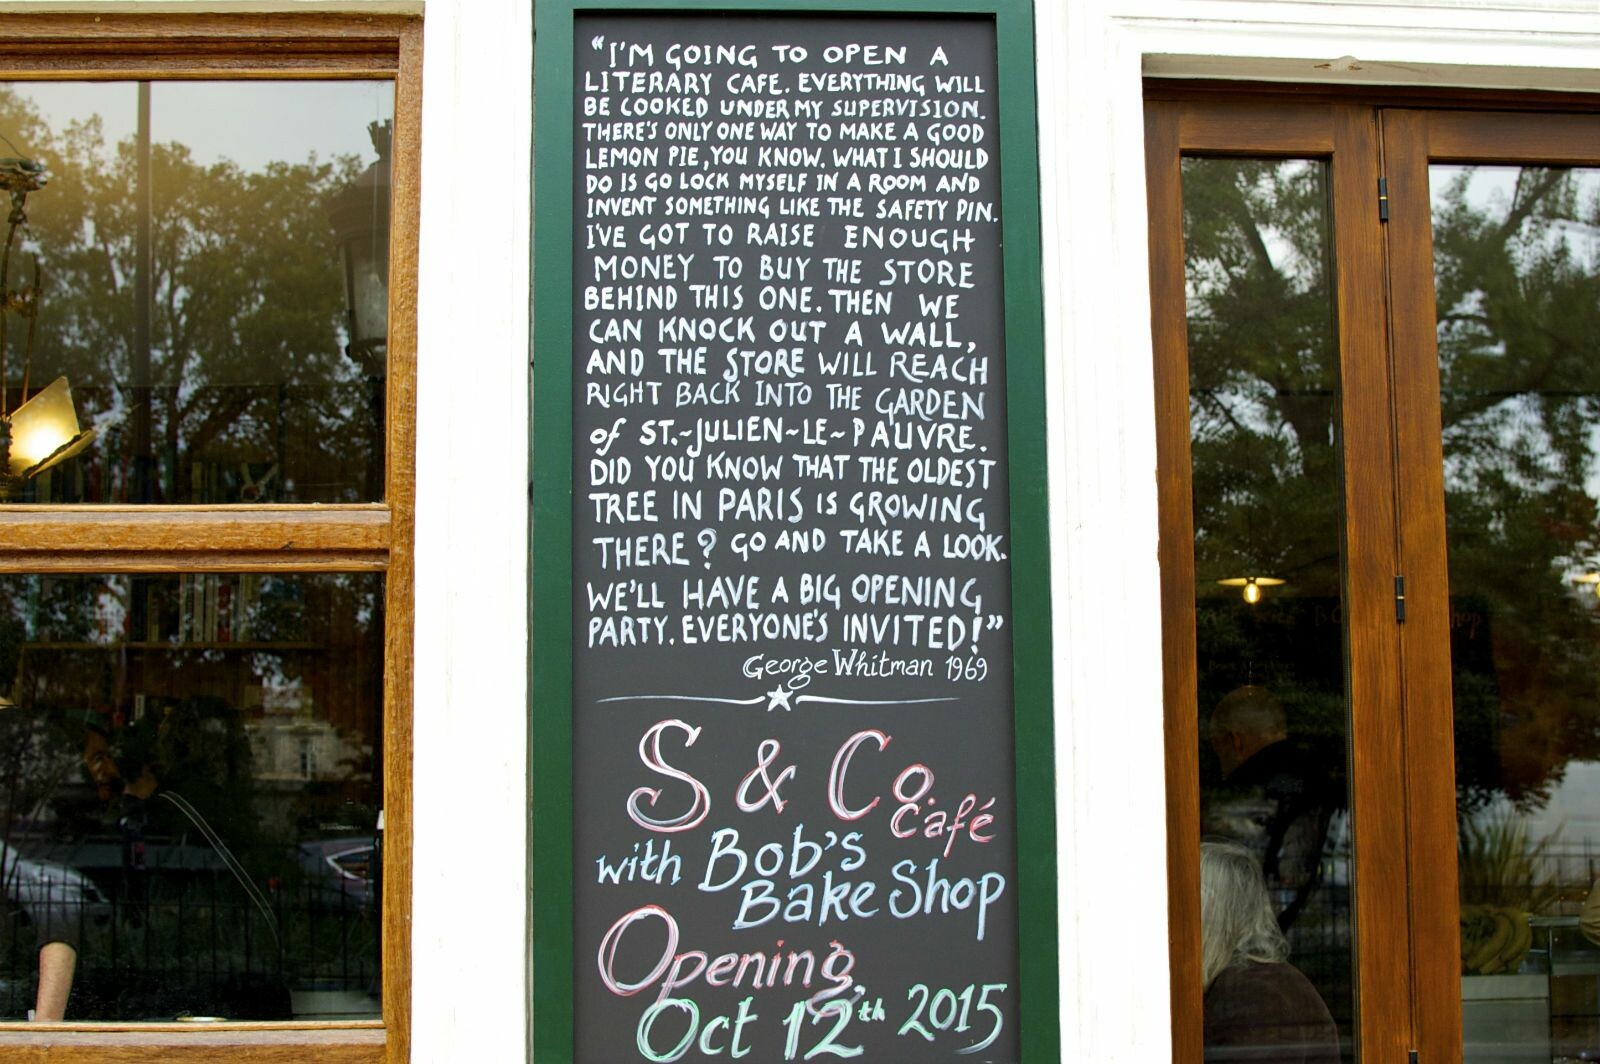 "I'M GOING TO OPEN A
LITERARY CAFE. EVERYTHING WILL
BE COOKED UNDER MY SUPERVISION.
THERE'S ONLY ONE WAY TO MAKE A GOOD
LEMON PIE, YOU KNOW. WHAT I SHOULD
DO IS GO LOCK MYSELF IN A ROOM AND
INVENT SOMETHING LIKE THE SAFETY PIN.
I'VE GOT TO RAISE ENOUGH
MONEY TO BUY THE STORE
BEHIND THIS ONE. THEN WE
CAN KNOCK OUT A WALL,
AND THE STORE WILL REACH
RIGHT BACK INTO THE GARDEN
of ST.~JULIEN~LE~PAUVRE.
DID YOU KNOW THAT THE OLDEST
TREE IN PARIS IS GROWING
THERE? GO AND TAKE A LOOK.
WE'LL HAVE A BIG OPENING
PARTY. EVERYONE'S INVITED!"
George Whitman 1969
S & Co.
Café
with Bob's
Bake Shop
Opening
Oct 12th 2015